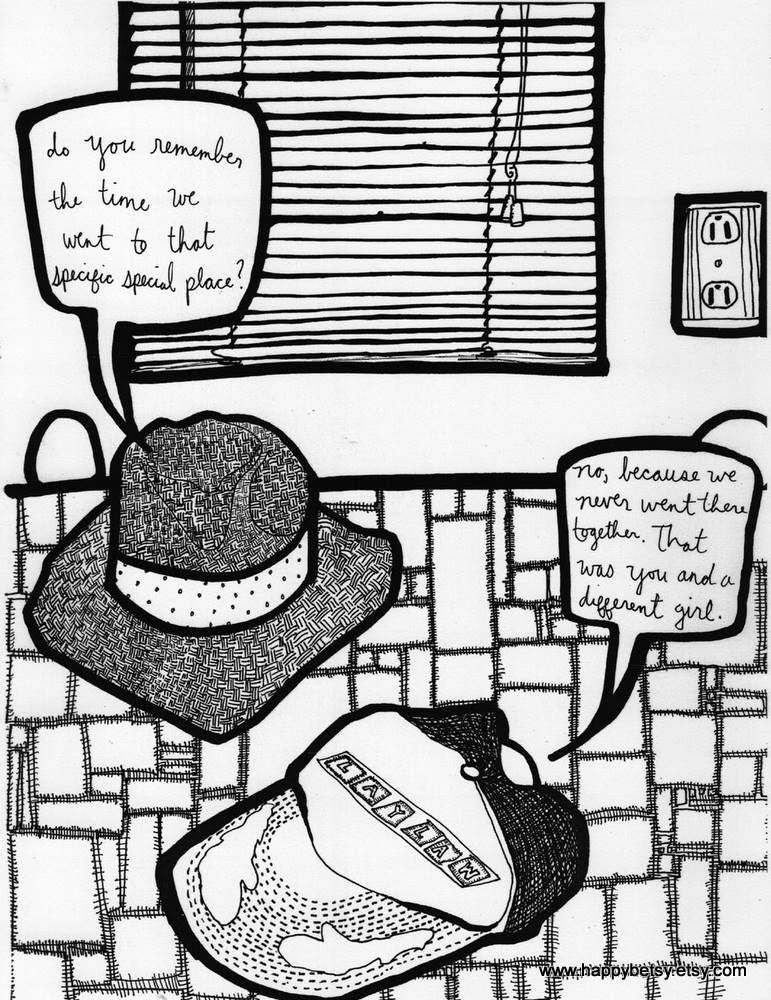 do you remember
the time we
went to that
specific special place?
no, because we
never went there
together. That
was you and a
different girl.
LAYLAW
www.happybetsy.etsy.com